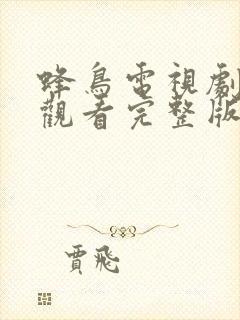 蜂鳥電視劇
觀看完整版
賈飛